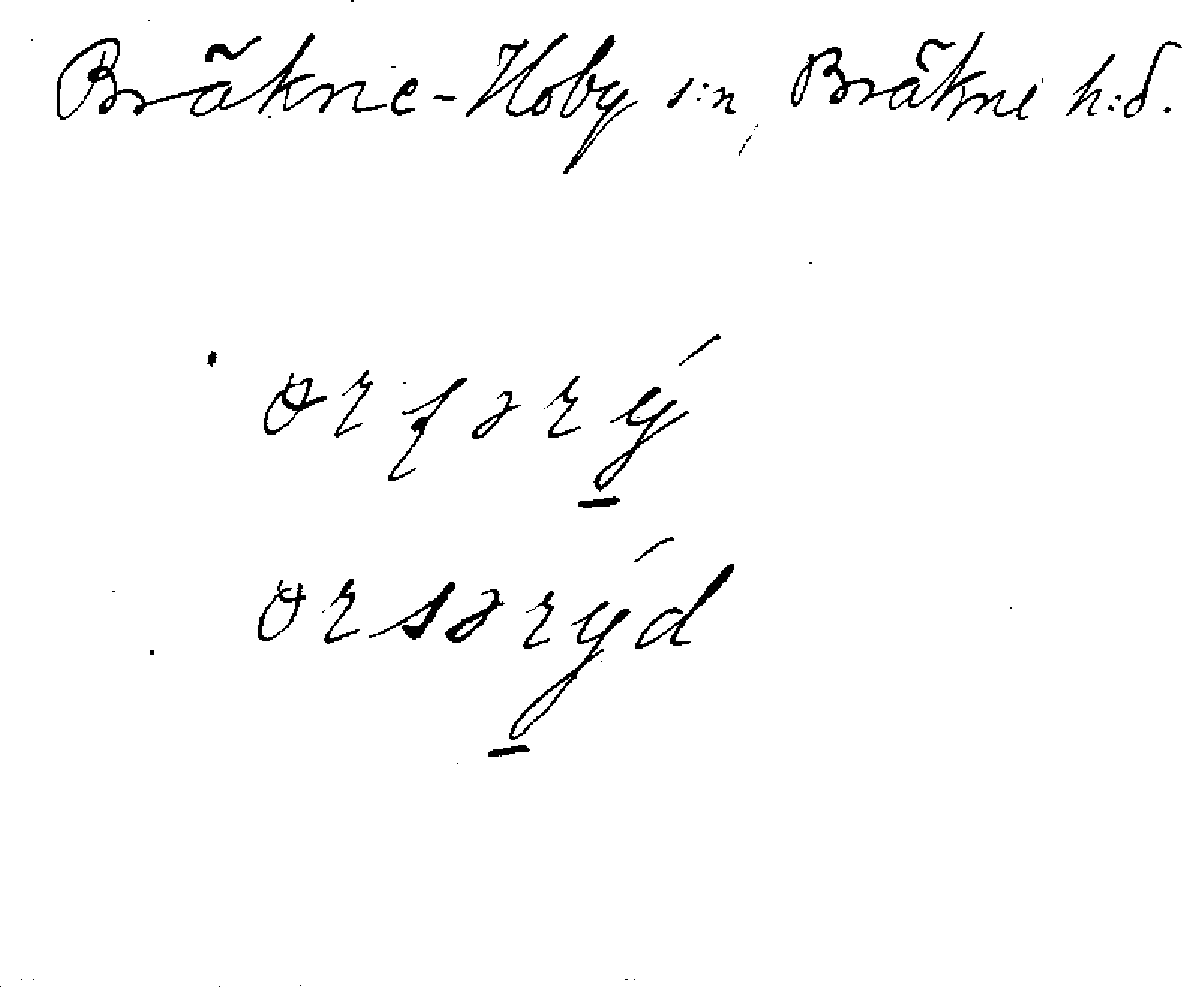 Bräkne-Hoby s:n, Bräkne h:d.
orsərý
orsərýd